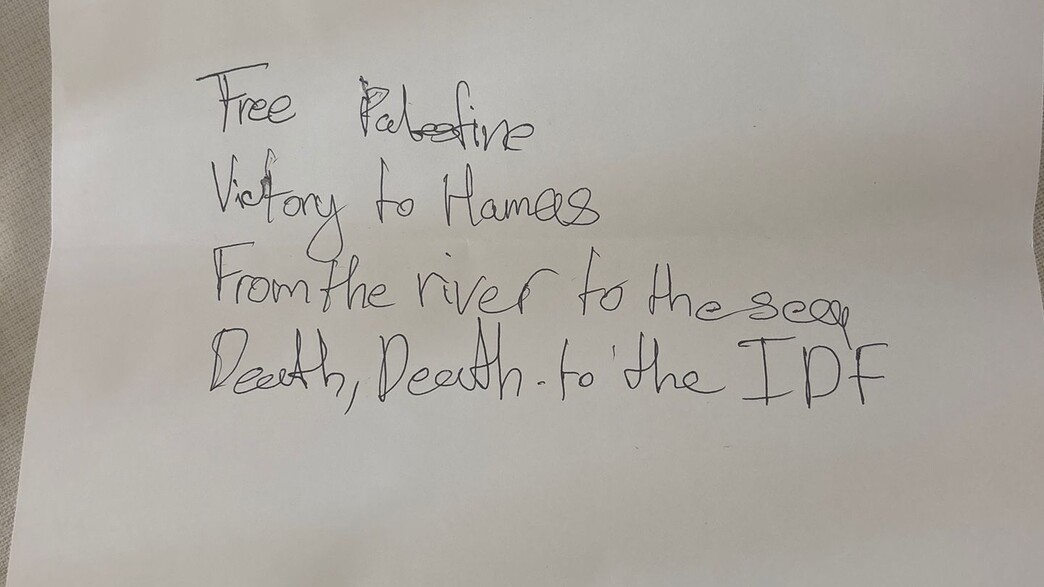 Free Palestine
Victory to Hamas
From the river to the sea,
Death, Death to the IDF